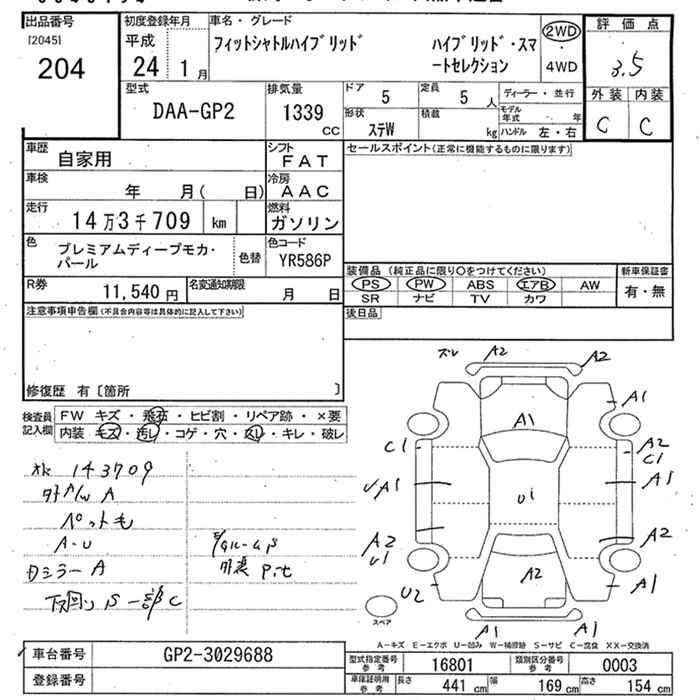 出品番号
[2045]
204
初度登録年月
平成
24 1月
車名・グレード
フィットシャトルハイブリッド ハイブリッド・スマ
ートセレクション
2WD
・4WD
評価点
3.5
外装 内装
C C
型式
DAA-GP2
排気量
1339
CC
ドア 5
定員 5 人
形状 ステW
積載 kg
ディーラー・並行
モデル年式 年
ハンドル 左・右
車歴 自家用
シフト FAT
車検 年 月( 日)
冷房 AAC
走行 14万3千709 km
燃料 ガソリン
色 プレミアムディープモカ・
パール
色替
色コード YR586P
R券 11,540円
名変通知期限 月 日
セールスポイント(正常に機能するものに限ります)
装備品 (純正品に限り○をつけてください)
PS PW ABS エアB AW
SR ナビ TV カワ
新車保証書
有・無
後日品
注意事項申告欄(不具合内容等は具体的に記入して下さい)
修復歴 有〔箇所 〕
検査員
記入欄
FW キズ・飛石・ヒビ割・リペア跡・×要
内装 キズ・汚レ・コゲ・穴・スレ・キレ・破レ
143709
A
ペットも
A-U
カミラーA
下回り S 一部C
ズレ A2 A2
A1 A1
C1 A2
C1
A1 U1 A1
A2
U1 A2
U2 A2 A1
A1 A1
スペア
A-キズ E-エクボ U-凹み W-補修跡 S-サビ C-腐食 XX-交換済
車台番号 GP2-3029688
登録番号
型式指定番号
参考 16801
類別区分番号
参考 0003
車庫証明用
参考
長さ 441 cm 幅 169 cm 高さ 154 cm